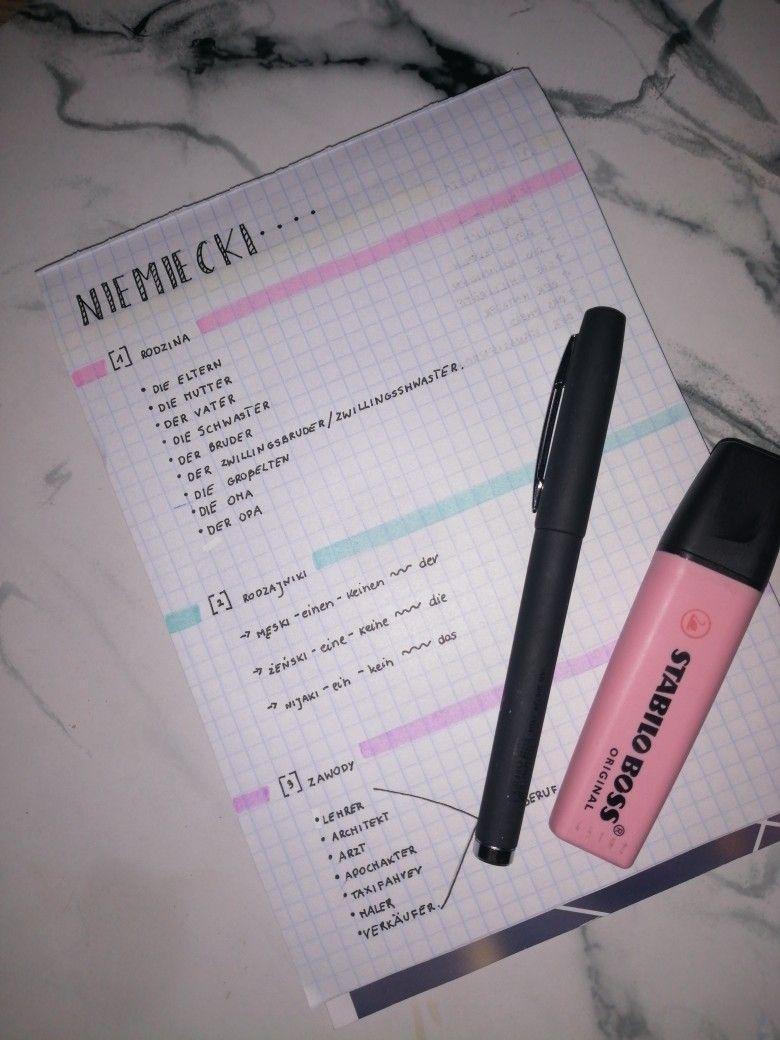 NIEMIECKI....
[1] RODZINA
• DIE ELTERN
• DIE MUTTER
• DER VATER
• DIE SCHWASTER
• DER BRUDER
• DER ZWILLINGSBRUDER/ZWILLINGSSHWASTER.
• DIE GROBELTEN
• DIE OMA
• DER OPA
[2] RODZAJNIKI
→ MĘSKI - einen - keinen ~~ der
→ ŻEŃSKI - eine - keine ~~ die
→ NIJAKI - ein - kein ~~ das
[3] ZAWODY
• LEHRER
• ARCHITEKT
BERUF
• ARZT
• APOCHAKTER
• TAXIFAHRER
• MALER
• VERKÄUFER.
STABILO BOSS®
ORIGINAL